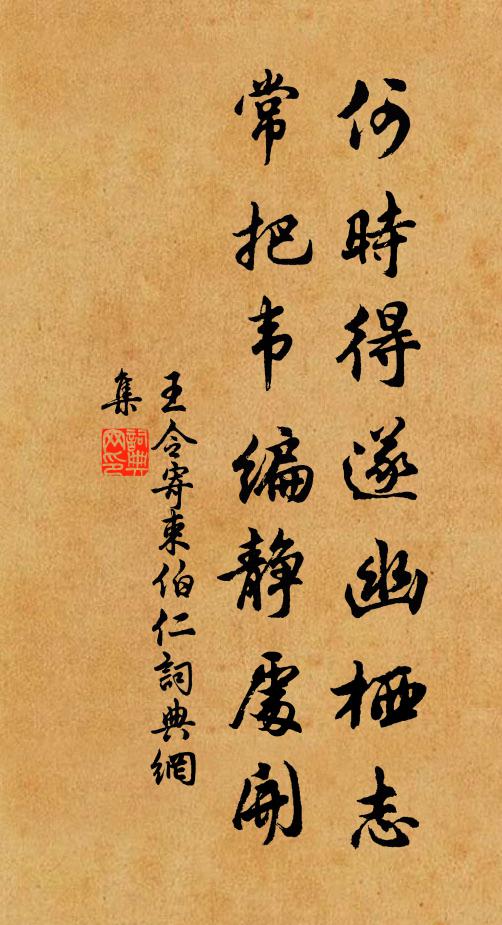 何時得遂幽栖志
常把韦编静處開
王令寄束伯仁詞典網
集
詞典网印